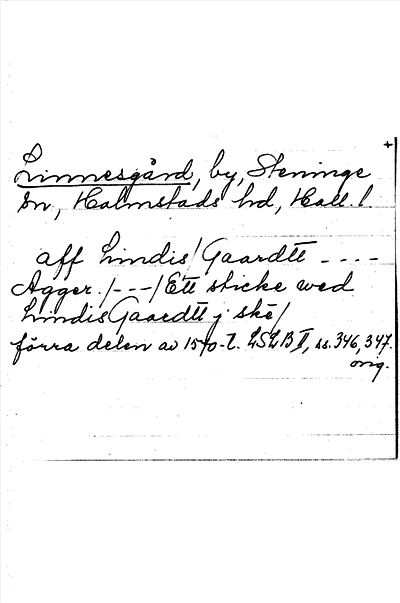 +
Linnesgård, by, Steninge
sn, Halmstads hd, Hall. l.
aff Lindis/Gaardtt ----
Agger. /---/ Ett sticke wed
LindisGaardtt j skě/
förra delen av 1570-t. LSLB II, ss. 346, 347.
orig.